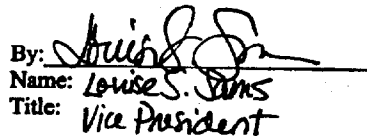 By: Louise S. Sams
Name: Louise S. Sams
Title: Vice President